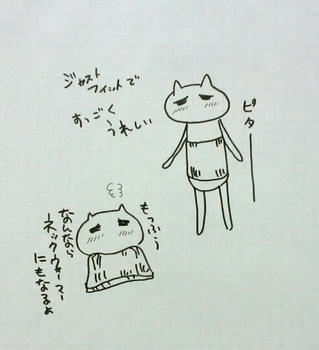 ジャスト
フィットで
すっごく
うれしい
ピタ
もっふぅ
なんなら
ネックウォーマー
にもなるよ